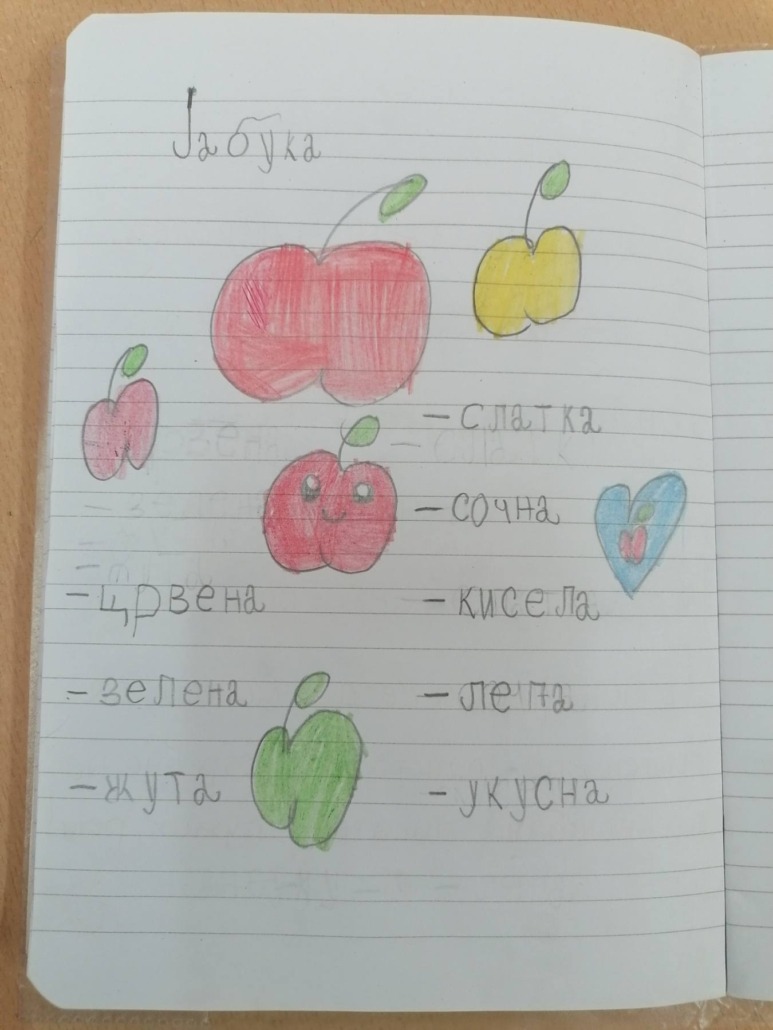 Јабука
- слатка
- сочна
- црвена
- кисела
- зелена
- лепа
- жута
- укусна